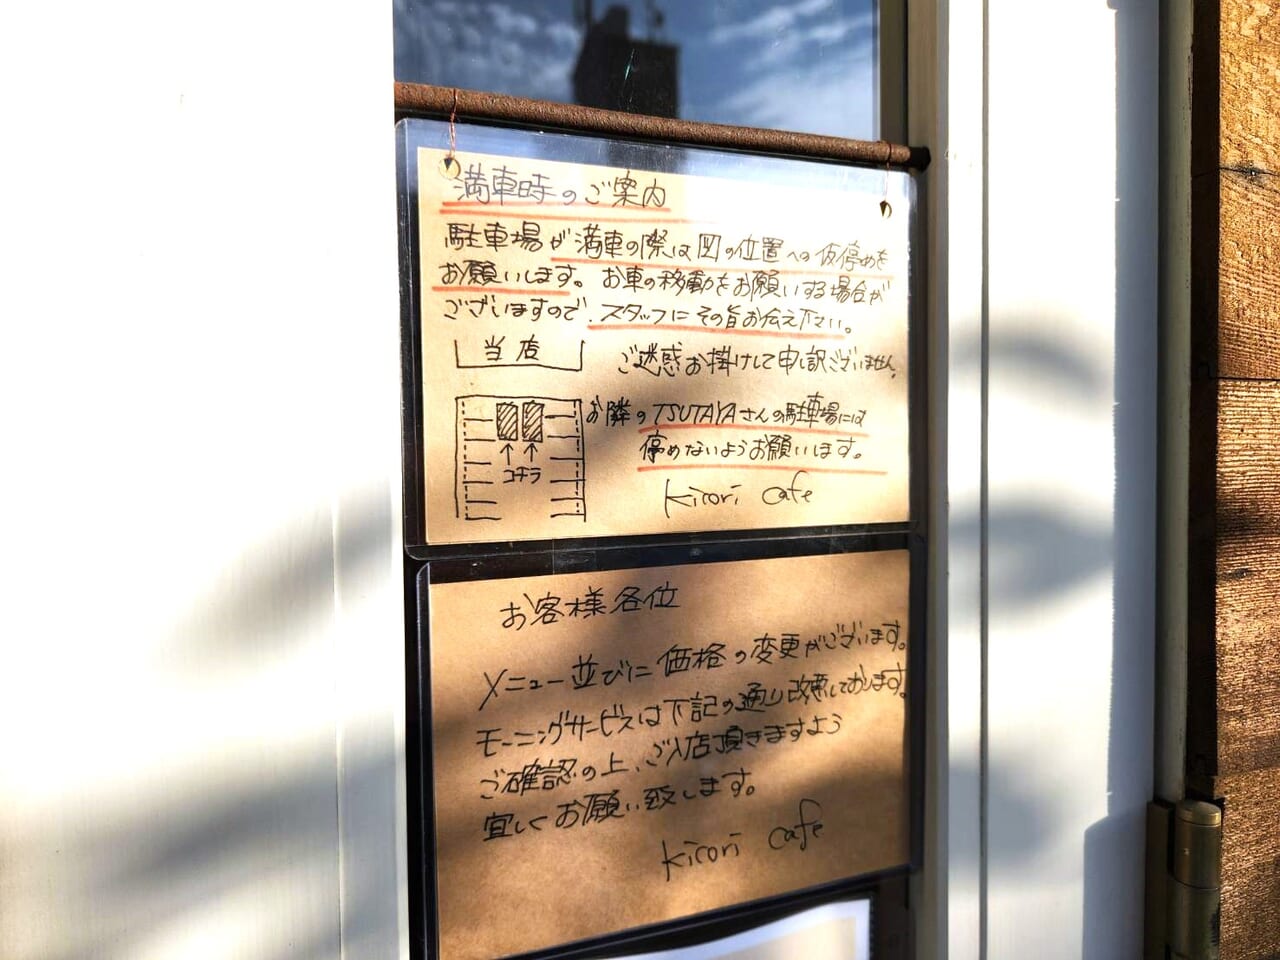 満車時のご案内
駐車場が満車の際は図の位置への仮停めを
お願いします。お車の移動をお願いする場合が
ございますので、スタッフにその旨お伝え下さい。
当店
ご迷惑お掛けして申し訳ございません。
お隣のTSUTAYAさんの駐車場には
停めないようお願いします。
コチラ
kitori cafe
お客様各位
メニュー並びに価格の変更がございます。
モーニングサービスは下記の通り改悪しております。
ご確認の上、ご入店頂きますよう
宜しくお願い致します。
kitori cafe